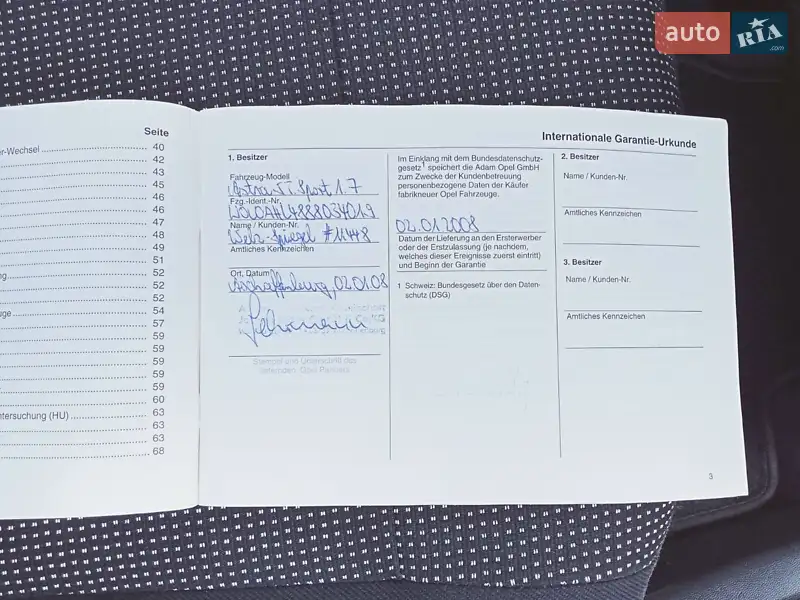 auto RIA .com
Seite
er-Wechsel 40
42
43
45
46
46
47
48
49
51
52
52
52
54
57
59
59
59
59
59
60
ntersuchung (HU) 63
63
63
68
Internationale Garantie-Urkunde
1. Besitzer
Fahrzeug-Modell
Astra 5T. Sport 1.7
Fzg.-Ident.-Nr.
W0L0AHL4888034019
Name / Kunden-Nr.
#11448
Amtliches Kennzeichen
Ort, Datum
Aschaffenburg, 02.01.08
Stempel und Unterschrift des
liefernden Opel Partners
Im Einklang mit dem Bundesdatenschutz-
gesetz1 speichert die Adam Opel GmbH
zum Zwecke der Kundenbetreuung
personenbezogene Daten der Käufer
fabrikneuer Opel Fahrzeuge.
02.01.2008
Datum der Lieferung an den Ersterwerber
oder der Erstzulassung (je nachdem,
welches dieser Ereignisse zuerst eintritt)
und Beginn der Garantie
1 Schweiz: Bundesgesetz über den Daten-
schutz (DSG)
2. Besitzer
Name / Kunden-Nr.
Amtliches Kennzeichen
3. Besitzer
Name / Kunden-Nr.
Amtliches Kennzeichen
3